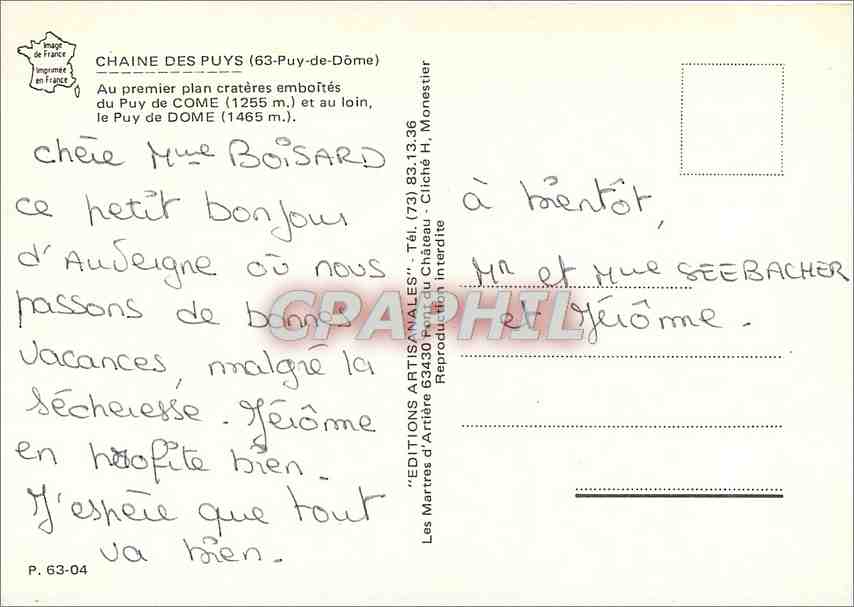 Image
de France
Imprimée
en France
CHAINE DES PUYS (63-Puy-de-Dôme)
Au premier plan cratères emboîtés
du Puy de COME (1255 m.) et au loin,
le Puy de DOME (1465 m.).
chère Mme BOISARD
ce petit bonjour
d'Auvergne où nous
passons de bonnes
vacances, malgré la
sécheresse. Jérôme
en profite bien.
J'espère que tout
va bien.
P. 63-04
"EDITIONS ARTISANALES" - Tél. (73) 83.13.36
Les Martres d'Artière 63430 Pont du Château - Cliché H. Monestier
Reproduction interdite
à bientôt,
Mr et Mme SEEBACHER
et Jérôme.
CPAPHIL